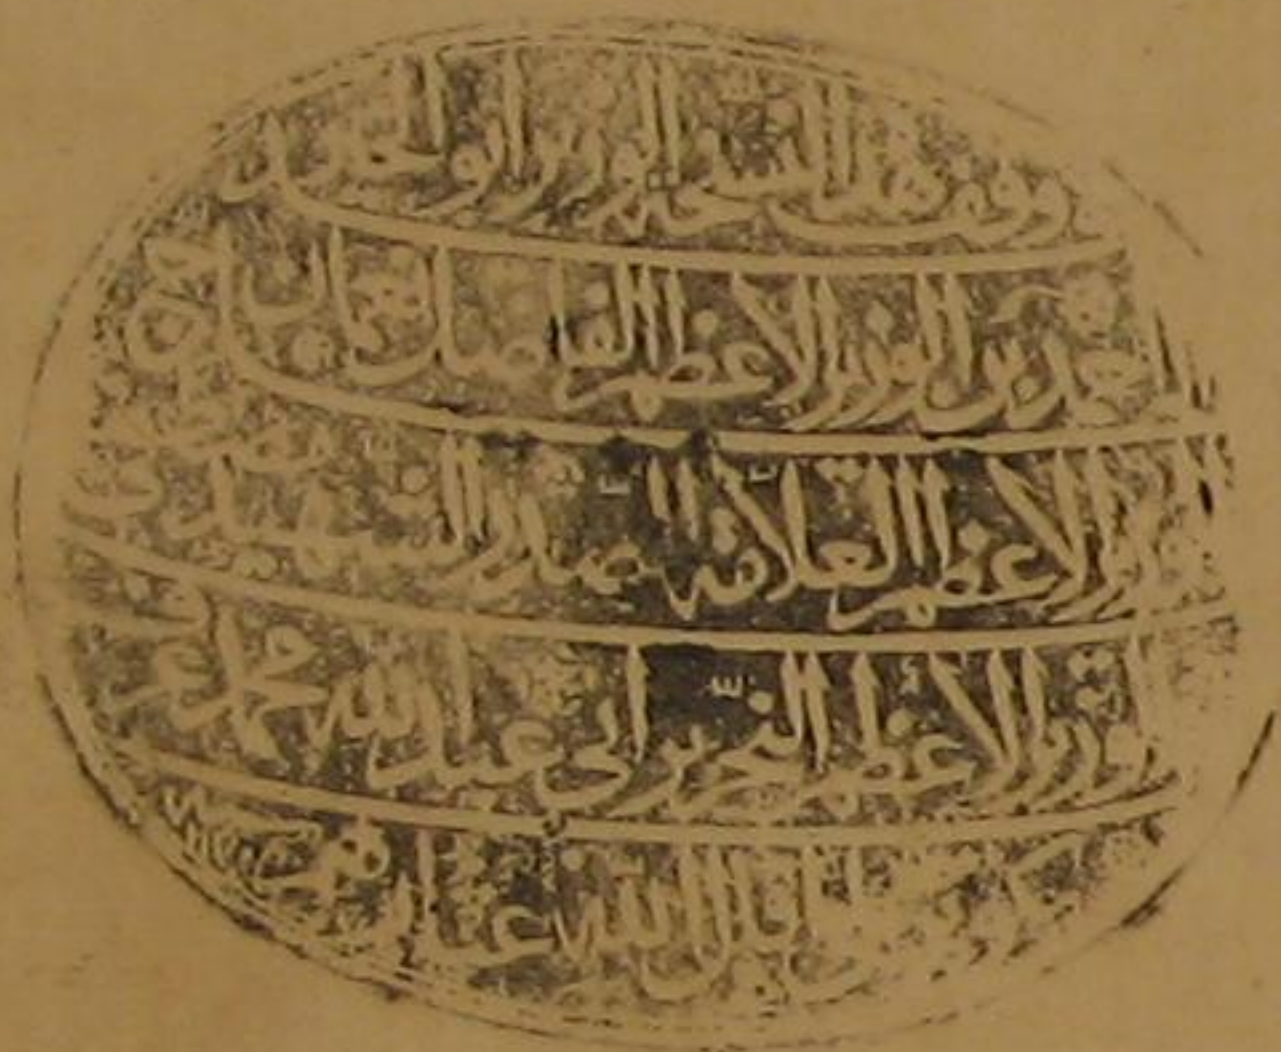 وقف هذا النسخة الوزير ابو الخير
احمد بن الوزير الاعظم الفاضل نعمان ابن
الوزير الاعظم العلامة صدر الشهيد
الوزير الاعظم النحرير ابي عبد الله محمد عرف
اقال الله عثارهم